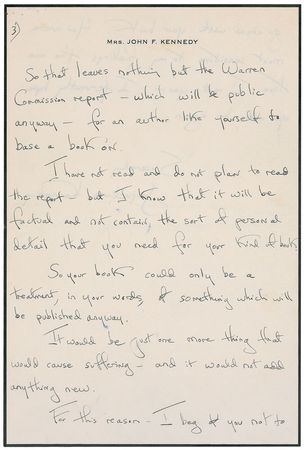 3)
MRS. JOHN F. KENNEDY
So that leaves nothing but the Warren
Commission report – which will be public
anyway – for an author like yourself to
base a book on.
I have not read and do not plan to read
the report – but I know that it will be
factual and not contain, the sort of personal
detail that you need for your kind of book.
So your book could only be a
treatment, in your words, of something which will
be published anyway.
It would be just one more thing that
would cause suffering – and it would not add
anything new.
For this reason – I beg of you not to